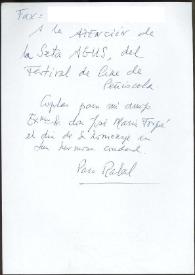 Fax:
A la ATENCIÓN de
la Srta AGUS, del
Festival de Cine de
Peñíscola
Copla para mi amigo
Exmo. Sr. don José María Forqué
el día de su homenaje en
tan hermosa ciudad.
Paco Rabal